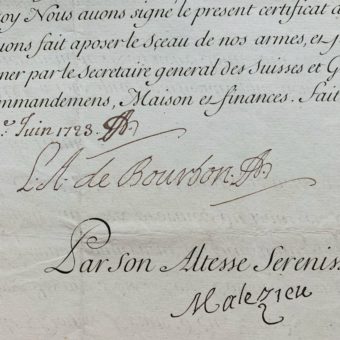 foy Nous auons signé le present certificat a
uons fait aposer le sceau de nos armes, et
ner par le Secretaire general des Suisses et G
ommandemens, Maison et finances. Fait
Juin 1723.
L. A. de Bourbon.
Par Son Altesse Sereniss
Malezieu